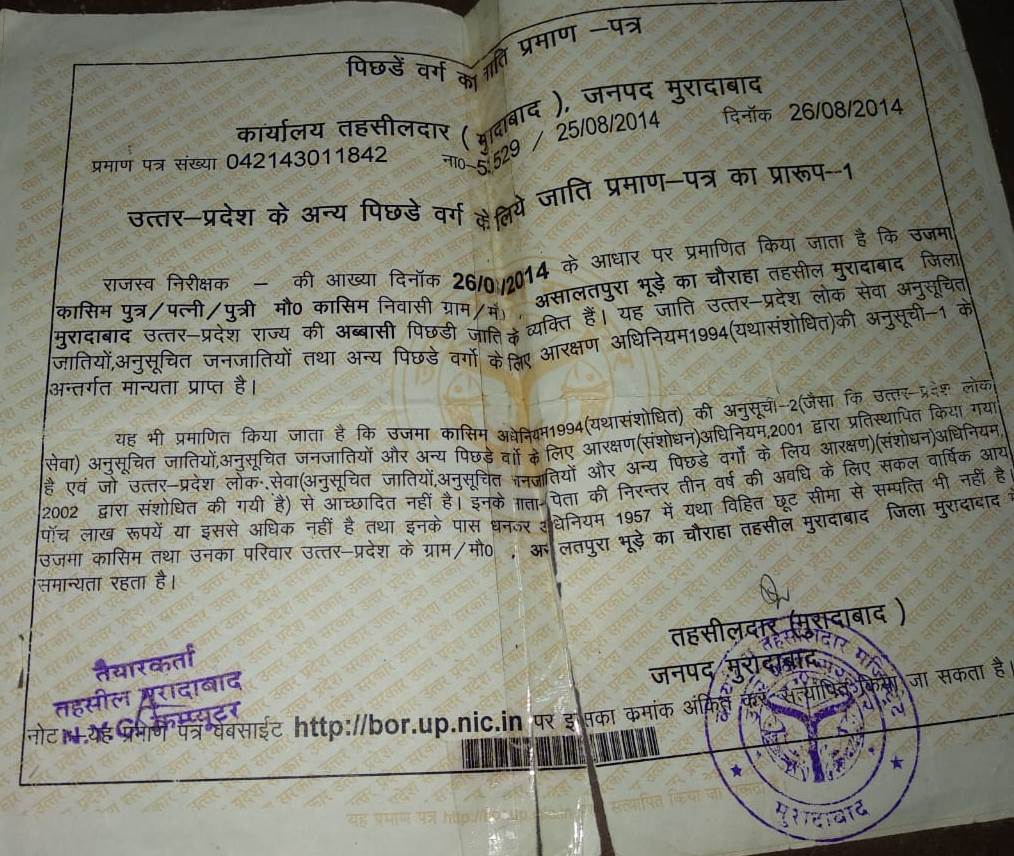 पिछडें वर्ग का जाति प्रमाण –पत्र
कार्यालय तहसीलदार ( मुरादाबाद ), जनपद मुरादाबाद
प्रमाण पत्र संख्या 042143011842 ना0-5:529 / 25/08/2014 दिनॉक 26/08/2014
उत्तर–प्रदेश के अन्य पिछडे वर्ग के लिये जाति प्रमाण–पत्र का प्रारूप--1
राजस्व निरीक्षक – की आख्या दिनॉक 26/0 /2014 के आधार पर प्रमाणित किया जाता है कि उजमा
कासिम पुत्र/पत्नी/पुत्री मौ0 कासिम निवासी ग्राम/मौ0 , असालतपुरा भूड़े का चौराहा तहसील मुरादाबाद जिला
मुरादाबाद उत्तर–प्रदेश राज्य की अब्बासी पिछडी जाति के व्यक्ति हैं। यह जाति उत्तर–प्रदेश लोक सेवा अनुसूचित
जातियों,अनुसूचित जनजातियों तथा अन्य पिछडे वर्गो के लिए आरक्षण अधिनियम1994(यथासंशोधित)की अनुसूची–1 के
अन्तर्गत मान्यता प्राप्त है।
यह भी प्रमाणित किया जाता है कि उजमा कासिम अधेनियम1994(यथासंशोधित) की अनुसूची–2(जैसा कि उत्तर–प्रदेश लोक
सेवा) अनुसूचित जातियों,अनुसूचित जनजातियों और अन्य पिछडे वर्गो के लिए आरक्षण(संशोधन)अधिनियम,2001 द्वारा प्रतिस्थापित किया गया
है एवं जो उत्तर–प्रदेश लोक सेवा(अनुसूचित जातियों,अनुसूचित जनजातियों और अन्य पिछडे वर्गो के लिय आरक्षण)(संशोधन)अधिनियम,
2002 द्वारा संशोधित की गयी है) से आच्छादित नहीं है। इनके माता–पिता की निरन्तर तीन वर्ष की अवधि के लिए सकल वार्षिक आय
पॉच लाख रूपयें या इससे अधिक नहीं है तथा इनके पास धनकर अधिनियम 1957 में यथा विहित छूट सीमा से सम्पत्ति भी नहीं है।
उजमा कासिम तथा उनका परिवार उत्तर–प्रदेश के ग्राम/मौ0 , असालतपुरा भूड़े का चौराहा तहसील मुरादाबाद जिला मुरादाबाद में
समान्यता रहता है।
तहसीलदार (मुरादाबाद )
जनपद मुरादाबाद
तैयारकर्ता
तहसील मुरादाबाद
कम्प्यूटर
नोट यह प्रमाण पत्र वेबसाईट http://bor.up.nic.in पर इसका कमांक अंकित कर सत्यापित किया जा सकता है।
मुरादाबाद
यह प्रमाण पत्र http://bor.up. सत्यापित किया जा